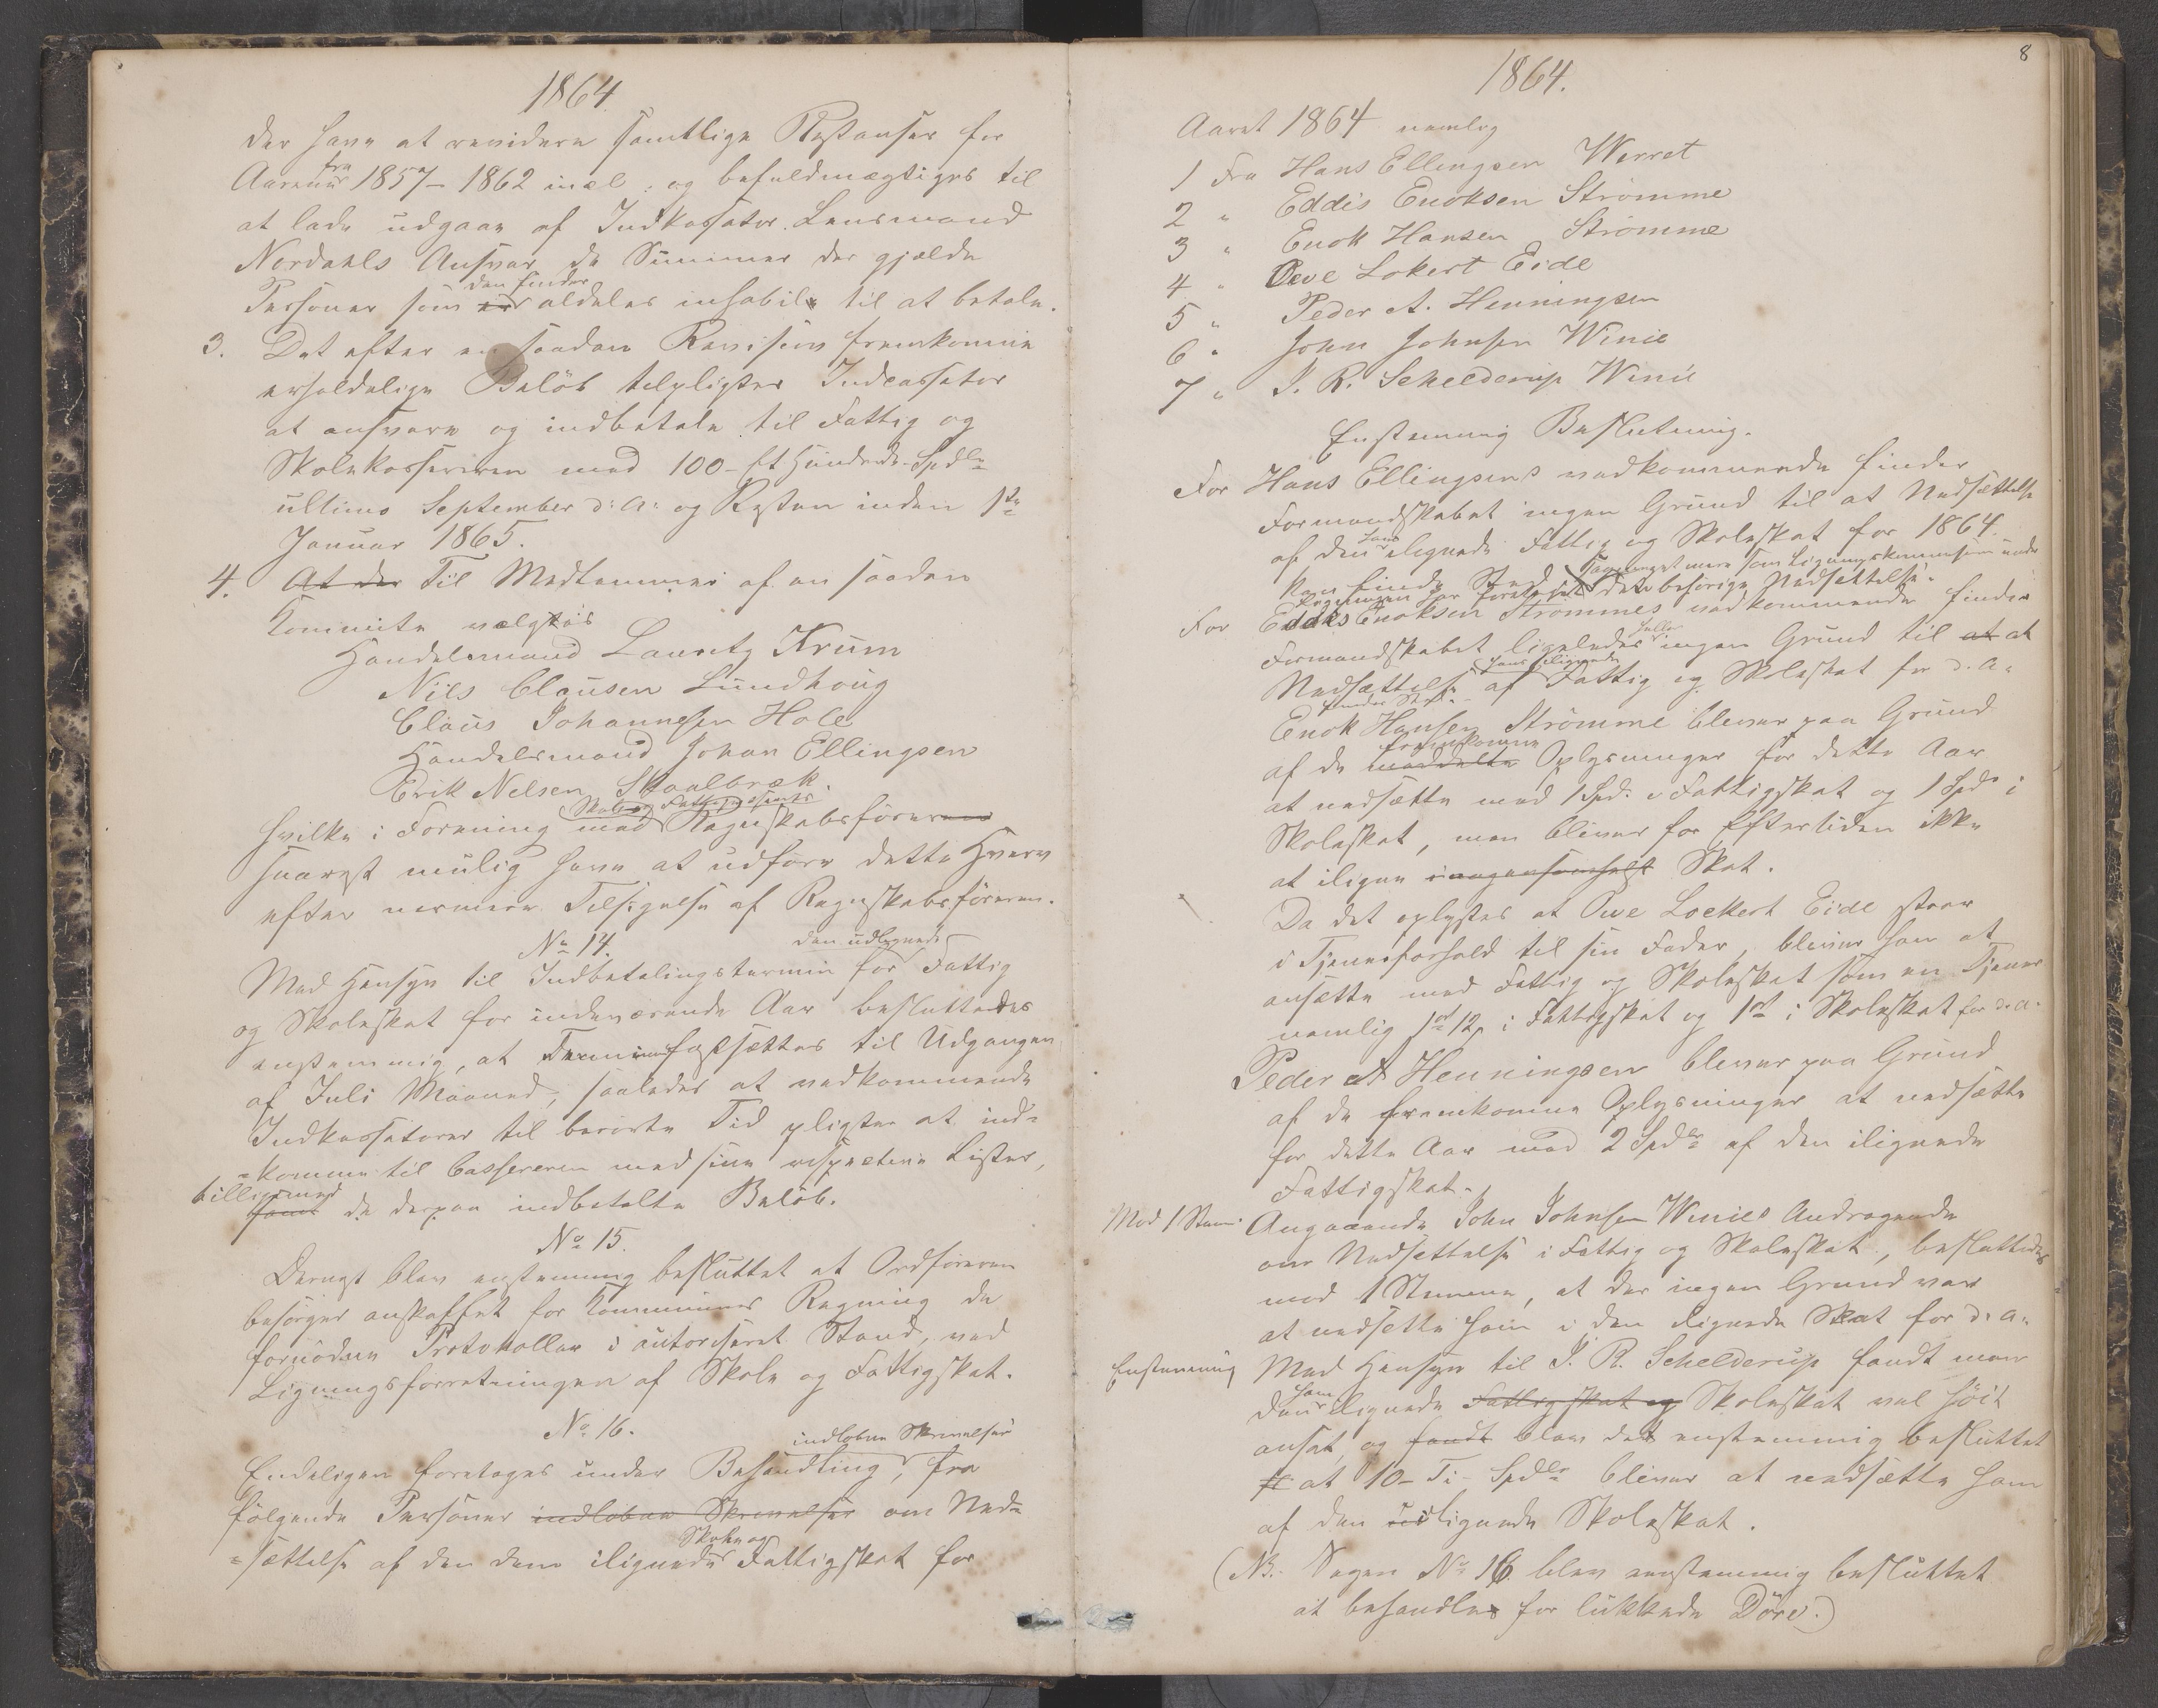 1864.
der have at revidere samtlige Restanser for
Aarene fra 1857-1862 incl: og befuldmægtiges til
at lade udgaae af Indkassator Lensmand
Nordahls Ansvar de Summer der gjælde
Personer som den finder aldeles inhabile til at betale.
3. Det efter en saadan Revision fremkomne
erholdelige Beløb tilpligtes Indcassator
at ansvare og indbetale til Fattig og
Skolekassereren med 100- Et Hundrede Spdlr
ultimo September d: A: og Resten inden 1ste
Januar 1865.
4. At der Til Medlemmer af en saadan
Kommite valgtes
Handelsmand Lauritz Krum
Nils Clausen Lundhoug
Claus Johannesen Hole
Handelsmand Johan Ellingsen
Erik Nelsen Skaalbræk.
Skole og Fattigvæsenets
hvilke i Forening med Regnskabsføreren
snarest mulig have at udføre dette Hverv
efter nermere Tilsigelse af Regnskabsføreren.
No 14.
den udlignede
Med Hensyn til Indbetalingstermin for Fattig
og Skoleskat for indeværende Aar besluttedes
enstemmig, at Terminen fastsættes til Udgangen
af Juli Maaned, saaledes at vedkommende
Indkassatorer til berørte Tid pligter at ind=
=komme til Cassereren med sine respective Lister,
tilligemed
samt de derpaa indbetalte Beløb.
No 15.
Dernæst blev enstemmig besluttet at Ordføreren
besørger anskaffet for Kommunens Regning de
fornødne Protokoller i autoriseret Stand, ved
Ligningsforretningen af Skole og Fattigskat.
No 16.
indløbne Skrivelser
Endeligen foretoges under Behandling, fra
følgende Personer indløbne Skrivelser om Ned=
Skole og
=sættelse af den dem ilignede Fattigskat for
8
1864.
Aaret 1864 nemlig
1 Fra Hans Ellingsen Werret
2 " Eddis Enoksen Strømme
3 " Enok Hansen Strømme
4 " Owe Lokert Eide
5 " Peder A. Henningsen
6 " John Johnsen Winie
7 " J. R. Schelderup Winie
Enstemmig Beslutning.
For Hans Ellingsens vedkommende finder
Formandskabet ingen Grund til at Nedsættelse
af den ham ilignede Fattig og Skoleskat for 1864.
kan finde Sted
For Eddis Enoksen Strømmes vedkommende finder
Formandskabet ligeledes heller ingen Grund til at at
Nedsættelse af Fattig og Skoleskat for d. A.
finder Sted.
Enok Hansen Strømme bliver paa Grund
fremkomne
af de meddelte Oplysninger for dette Aar
at nedsætte med 1 Spd. i Fattigskat og 1 Spdr i
Skoleskat, men bliver for Eftertiden ikke
at iligne i nogensomhelst Skat.
Da det oplystes at Owe Lockert Eide staar
i Tjenerforhold til sin Fader, bliver han at
ansætte med Fattig og Skoleskat som en Tjener
nemlig 1 ort 12 s i Fattigskat og 1 ort i Skoleskat for d. A.
Peder A Henningsen bliver paa Grund
af de fremkomne Oplysninger at nedsætte
for dette Aar med 2 Spdlr af den ilignede
Fattigskat.
Mod 1 Stem. Angaaende John Johnsen Winies Andragende
om Nedsettelse i Fattig og Skoleskat, besluttedes
mod 1 Stemme, at der ingen Grund var
at nedsætte ham i den ilignede Skat for d. A.
Enstemmig Med Hensyn til J. R. Schelderup fandt man
den ham ilignede Fattigskat og Skoleskat vel høit
ansat, og fandt blev det enstemmig besluttet
at 10- Ti- Spdlr bliver at nedsætte ham
af den ilignede Skoleskat.
(NB. Sagen No 16 blev enstemmig besluttet
at behandles for lukkede Døre.)